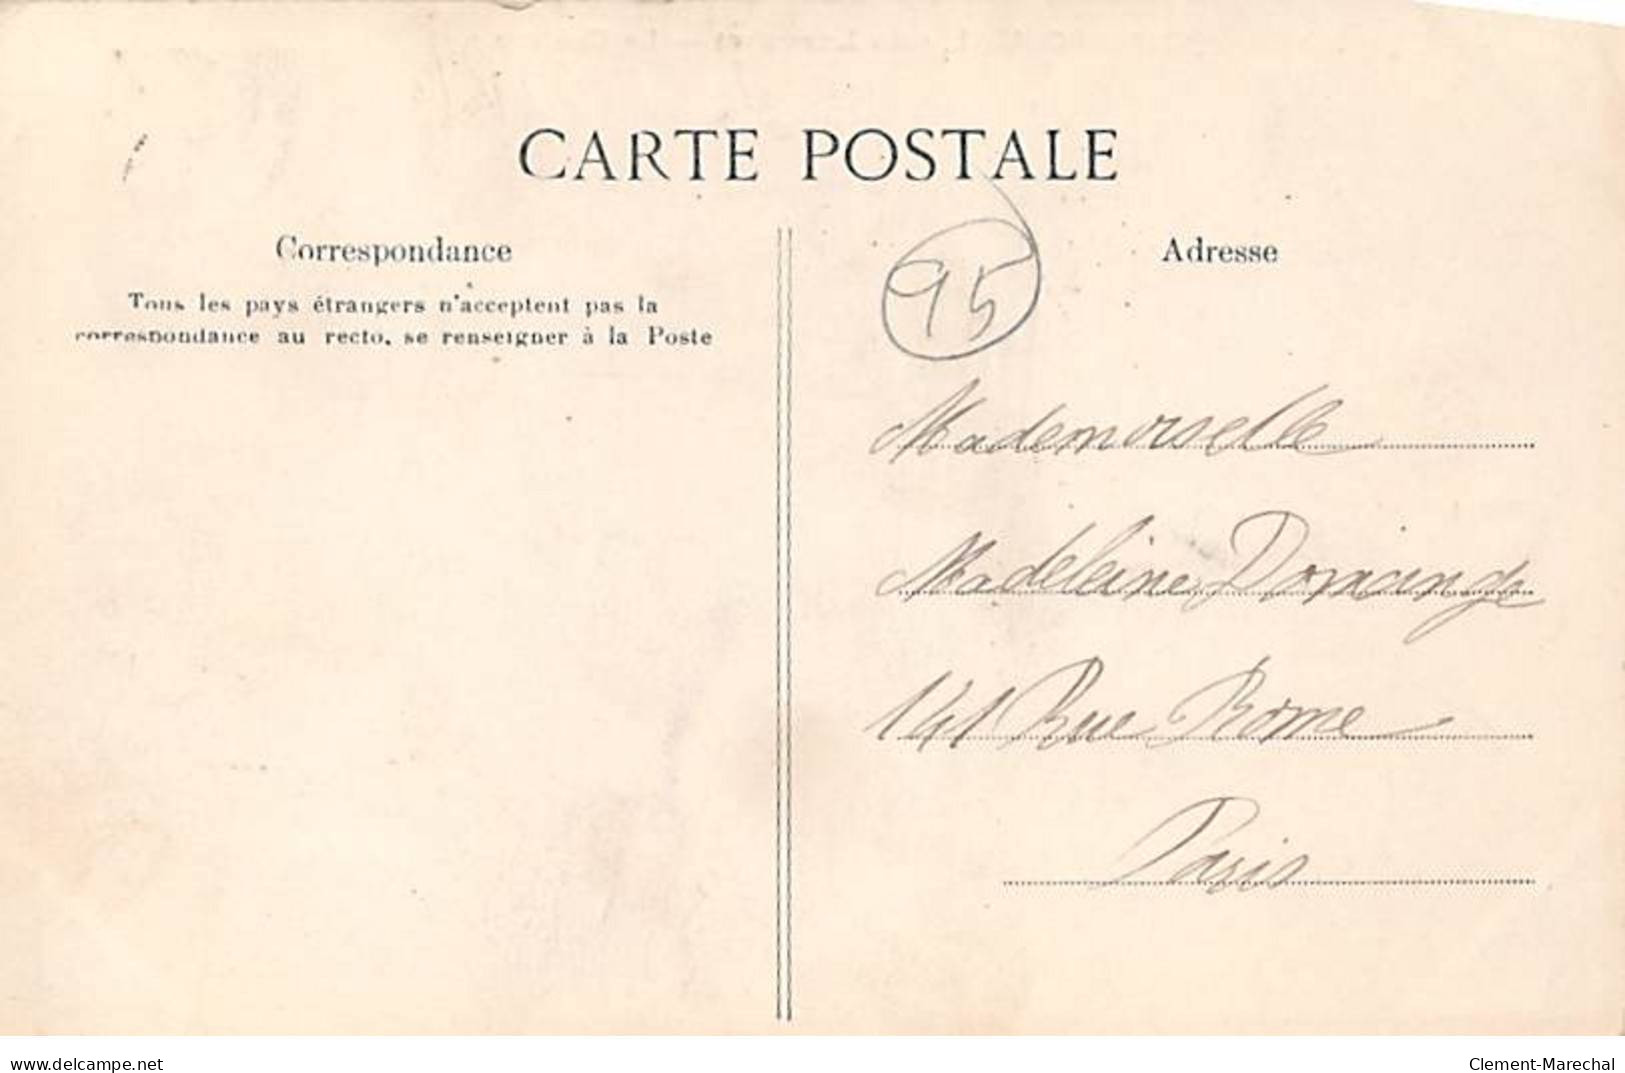 CARTE POSTALE
Correspondance
Tous les pays étrangers n'acceptent pas la
correspondance au recto, se renseigner à la Poste
Adresse
95
Mademoiselle
Madeleine Domange
141 Rue Rome
Paris
delcampe.net
Clement-Marechal